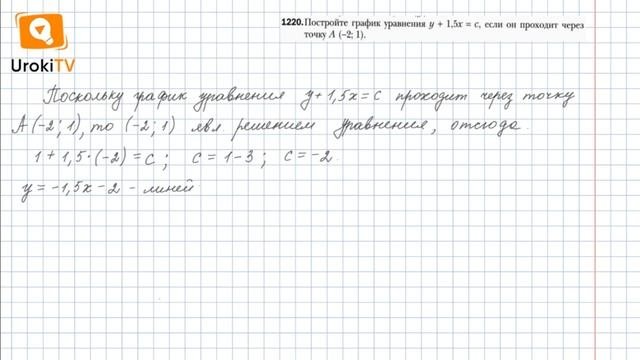 UrokiTV
1220. Постройте график уравнения y + 1,5x = c, если он проходит через
точку A (–2; 1).
Поскольку график уравнения y+1,5x=c проходит через точку
A(-2; 1), то (-2; 1) явл. решением уравнения, отсюда.
1+1,5·(-2)=c; c=1-3; c=-2.
y=-1,5x-2 - линей